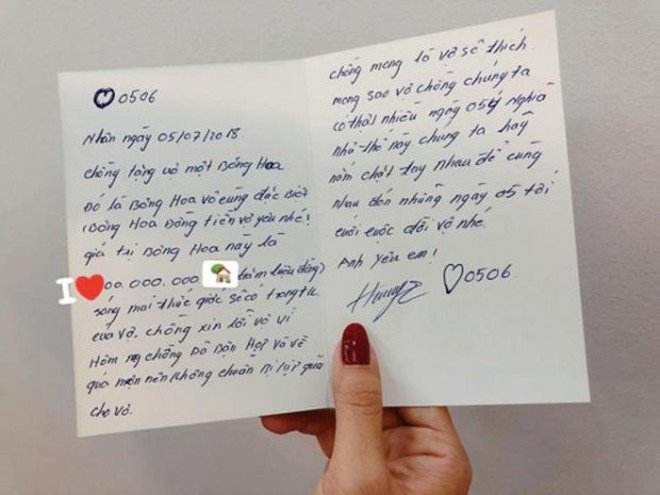 ♡0506
Nhân ngày 05/07/2018.
chồng tặng vợ một Bông Hoa
Đó là Bông Hoa vô cùng đặc Biệt
(Bông Hoa Đồng tiền vợ yêu nhé!
giá trị Bông Hoa này là
I ❤ 00.000.000 trăm triệu đồng)
sáng mai thức giấc sẽ có trong tk
của vợ. chồng xin lỗi vợ vì
Hôm nay chồng Đỗ Bận Họp Và về
quá muộn nên không chuẩn Bị kịp quà
cho vợ.
chồng mong là vợ sẽ thích.
mong sao vợ chồng chúng ta
có thật nhiều ngày 05 nghĩa
như thế này chúng ta hãy
nắm chặt tay nhau để cùng
nhau đón những ngày 05 tới
cuối cuộc đời vợ nhé.
Anh yêu em!
♡0506.